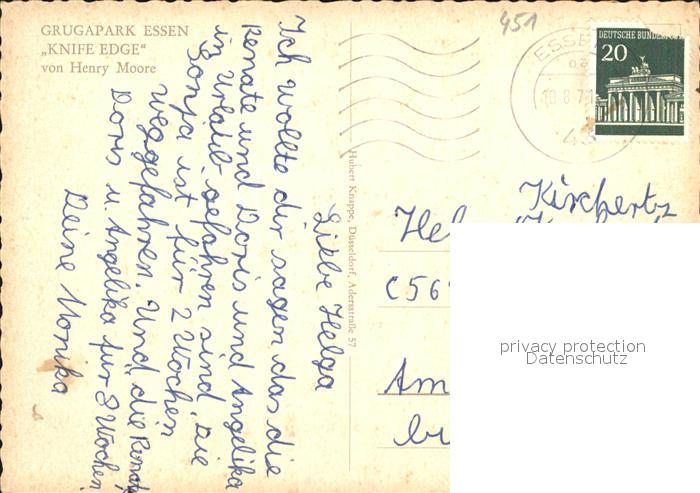 GRUGAPARK ESSEN
„KNIFE EDGE“
von Henry Moore
451
DEUTSCHE BUNDESPOST
20
ESSE
10.8.71
43
Hubert Knappe, Düsseldorf, Adersstraße 57
Liebe Helga
Ich wollte dir sagen das die
Renate und Doris und Angelika
in Urlaub gefahren sind. Die
Sonja ist für 2 Wochen
weggefahren. Und die Renate
Doris u. Angelika für 3 Wochen
Deine Monika
Kirchertz
Hel
C56
Am
privacy protection
Datenschutz